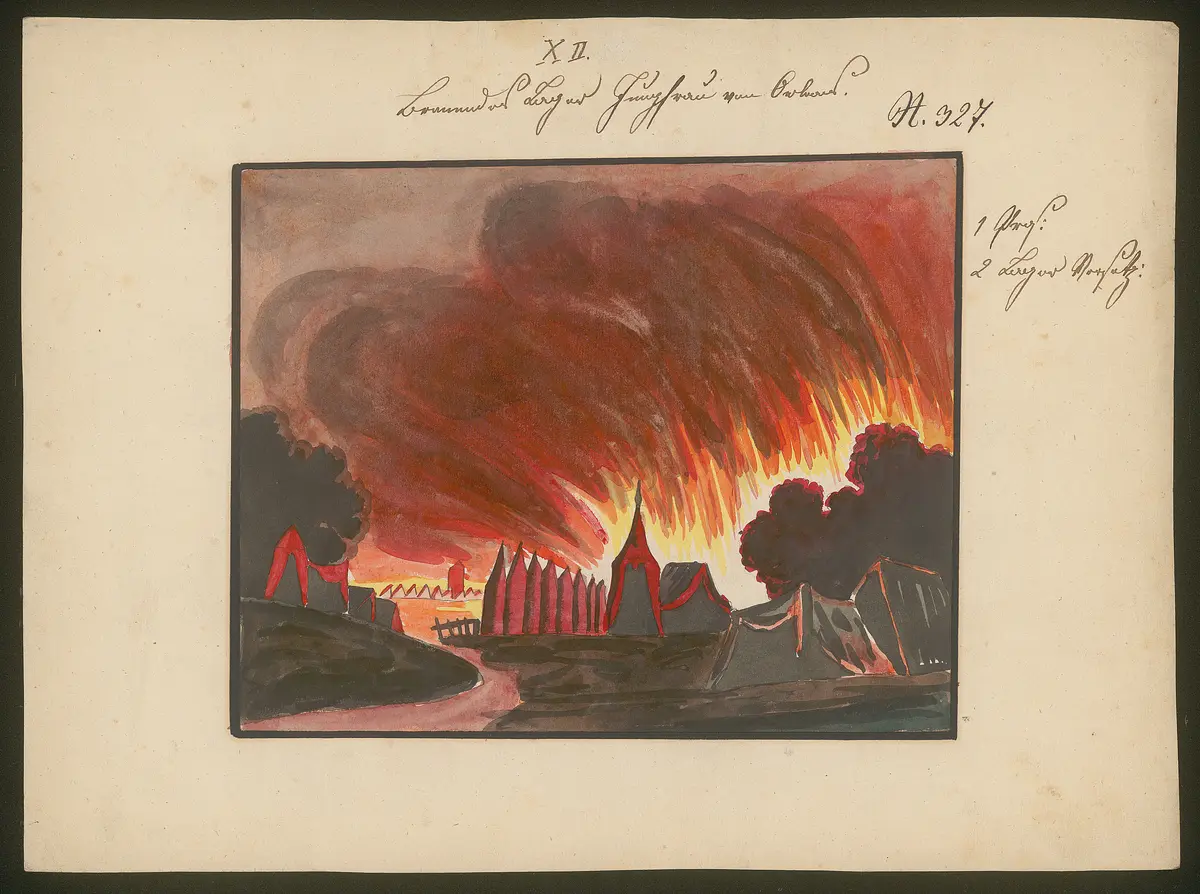 XII.
Brennendes Lager Jungfrau von Orleans.
N. 327.
1 Prosp:
2 Lager Versatz: